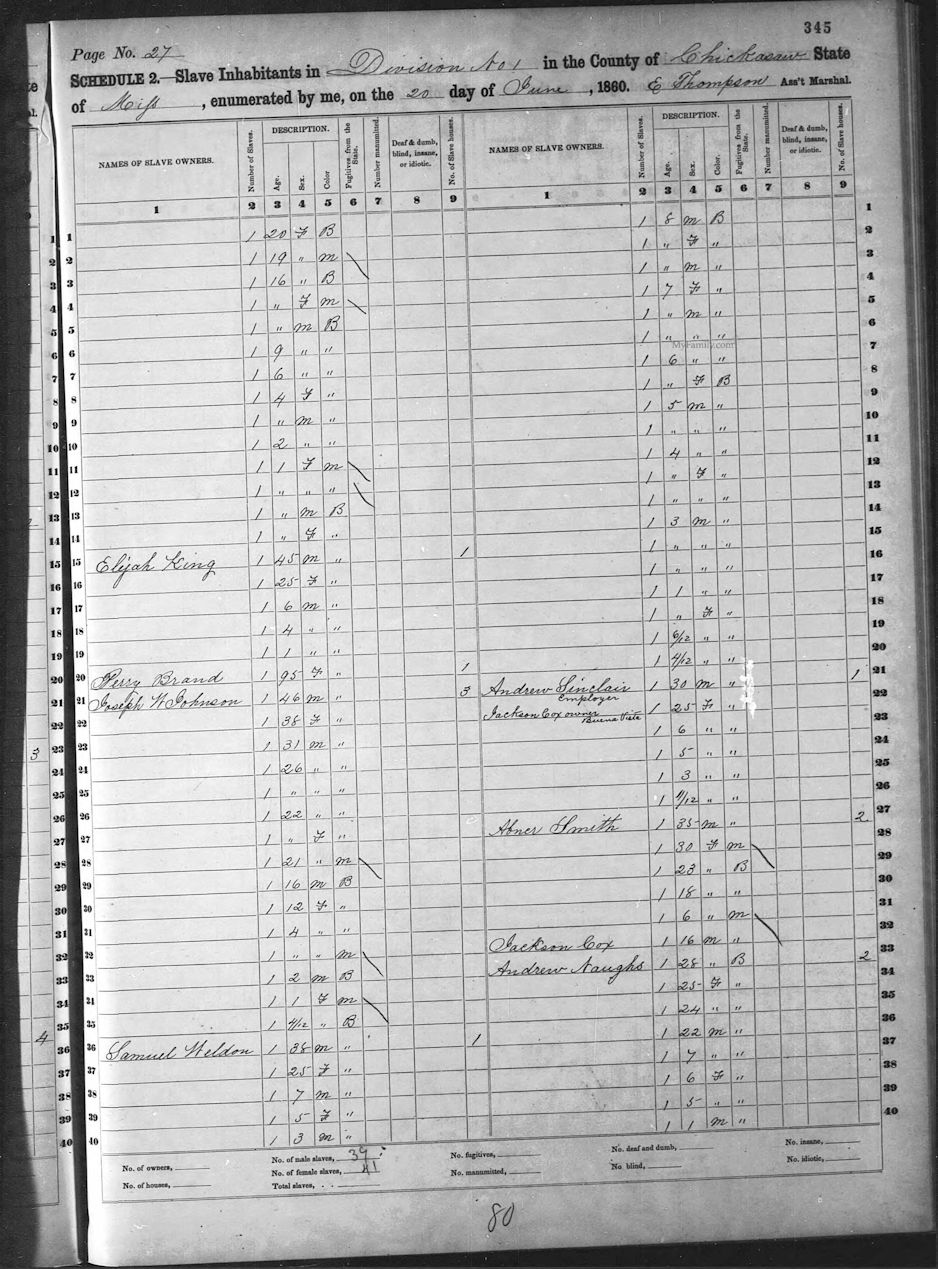 345
Page No. 27
SCHEDULE 2.—Slave Inhabitants in Division No 1 in the County of Chickasaw State
of Miss, enumerated by me, on the 20 day of June, 1860. E Thompson Ass't Marshal.
NAMES OF SLAVE OWNERS. Number of Slaves. DESCRIPTION. Age. Sex. Color Fugitives from the State. Number manumitted. Deaf & dumb, blind, insane, or idiotic. No. of Slave houses.
1 2 3 4 5 6 7 8 9
1 1 20 F B
2 1 19 " m
3 1 16 " B
4 1 " F m
5 1 " m B
6 1 9 " "
7 1 6 " "
8 1 4 F "
9 1 " m "
10 1 2 " "
11 1 1 F m
12 1 " " "
13 1 " m B
14 1 " F "
15 Elijah King 1 45 m " 1
16 1 25 F "
17 1 6 m "
18 1 4 " "
19 1 1 " "
20 Perry Brand 1 95 F " 1
21 Joseph W Johnson 1 46 m " 3
22 1 38 F "
23 1 31 m "
24 1 26 " "
25 1 " " "
26 1 22 " "
27 1 " F "
28 1 21 " m
29 1 16 m B
30 1 12 F "
31 1 4 " "
32 1 " " m
33 1 2 m B
34 1 1 F m
35 1 4/12 " B
36 Samuel Weldon 1 38 m " 1
37 1 25 F "
38 1 7 m "
39 1 5 F "
40 1 3 m "
NAMES OF SLAVE OWNERS. Number of Slaves. DESCRIPTION. Age. Sex. Color. Fugitives from the State. Number manumitted. Deaf & dumb, blind, insane, or idiotic. No. of Slave houses.
1 2 3 4 5 6 7 8 9
1 8 m B 1
1 " F " 2
1 " m " 3
1 7 F " 4
1 " m " 5
1 " " " 6
MyFamily.com
1 6 " " 7
1 " F B 8
1 5 m " 9
1 " " " 10
1 4 " " 11
1 " F " 12
1 " " " 13
1 3 m " 14
1 " " " 15
1 " " " 16
1 1 " " 17
1 " F " 18
1 6/12 " " 19
1 4/12 " " 20
Andrew Sinclair 1 30 m " 1 21
Employer
Jackson Cox owner 1 25 F " 22
Buena Vista
1 6 " " 23
1 5 " " 24
1 3 " " 25
1 " " 26
Abner Smith 1 35 m " 2 27
1 30 F m 28
1 23 " B 29
1 18 " " 30
1 6 " m 31
Jackson Cox 1 16 m " 32
Andrew Naughs 1 28 " B 2 33
1 25 F " 34
1 24 " " 35
1 22 m " 36
1 7 " " 37
1 6 F " 38
1 5 " " 39
1 1 m " 40
No. of owners, No. of male slaves, 39 No. of fugitives, No. deaf and dumb, No. insane,
No. of houses, No. of female slaves, 41 No. manumitted, No. blind, No. idiotic,
Total slaves,
80